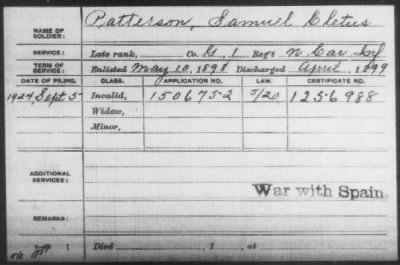 NAME OF SOLDIER: Patterson, Samuel Cletus
SERVICE: Late rank, Co. G, 1 Reg't N Car Inf
TERM OF SERVICE: Enlisted May 10, 1898 Discharged April, 1899
DATE OF FILING. CLASS. APPLICATION NO. LAW. CERTIFICATE NO.
1924 Sept 5 Invalid, 1506752 5/20 1256988
Widow,
Minor,
ADDITIONAL SERVICES:
War with Spain.
REMARKS:
Died , 1 , at